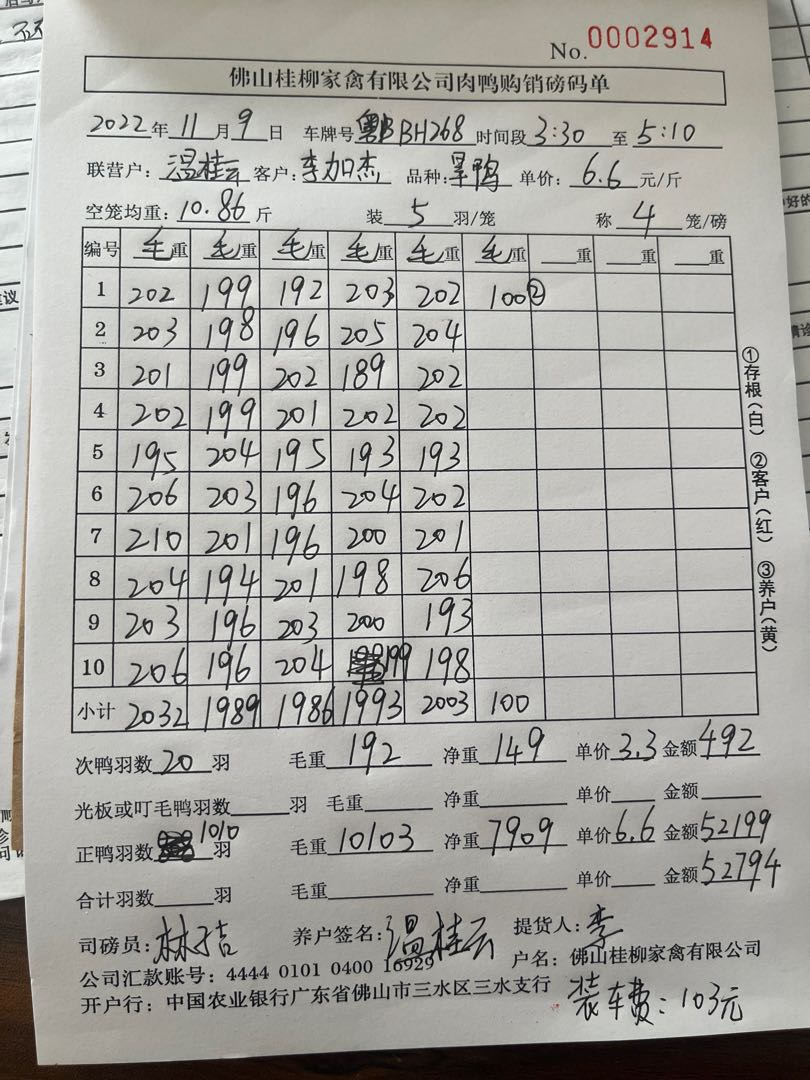 No. 0002914
佛山桂柳家禽有限公司肉鸭购销磅码单
2022年 11月 9日 车牌号 粤BBH268 时间段 3:30 至 5:10
联营户: 温桂云 客户: 李加杰 品种: 旱鸭 单价: 6.6 元/斤
空笼均重: 10.86 斤 装 5 羽/笼 称 4 笼/磅
编号 毛重 毛重 毛重 毛重 毛重 毛重 重 重 重
1 202 199 192 203 202 100②
2 203 198 196 205 204
3 201 199 202 189 202
4 202 199 201 202 202
5 195 204 195 193 193
6 206 203 196 204 202
7 210 201 196 200 201
8 204 194 201 198 206
9 203 196 203 200 193
10 206 196 204 199 198
小计 2032 1989 1986 1993 2003 100
次鸭羽数 20 羽 毛重 192 净重 149 单价 3.3 金额 492
光板或叮毛鸭羽数 羽 毛重 净重 单价 金额
正鸭羽数 1010 羽 毛重 10103 净重 7909 单价 6.6 金额 52199
合计羽数 羽 毛重 净重 单价 金额 52794
司磅员: 林 养户签名: 温桂云 提货人: 李
公司汇款账号: 4444 0101 0400 16929 户名: 佛山桂柳家禽有限公司
开户行: 中国农业银行广东省佛山市三水区三水支行 装车费: 103元
①存根(白) ②客户(红) ③养户(黄)